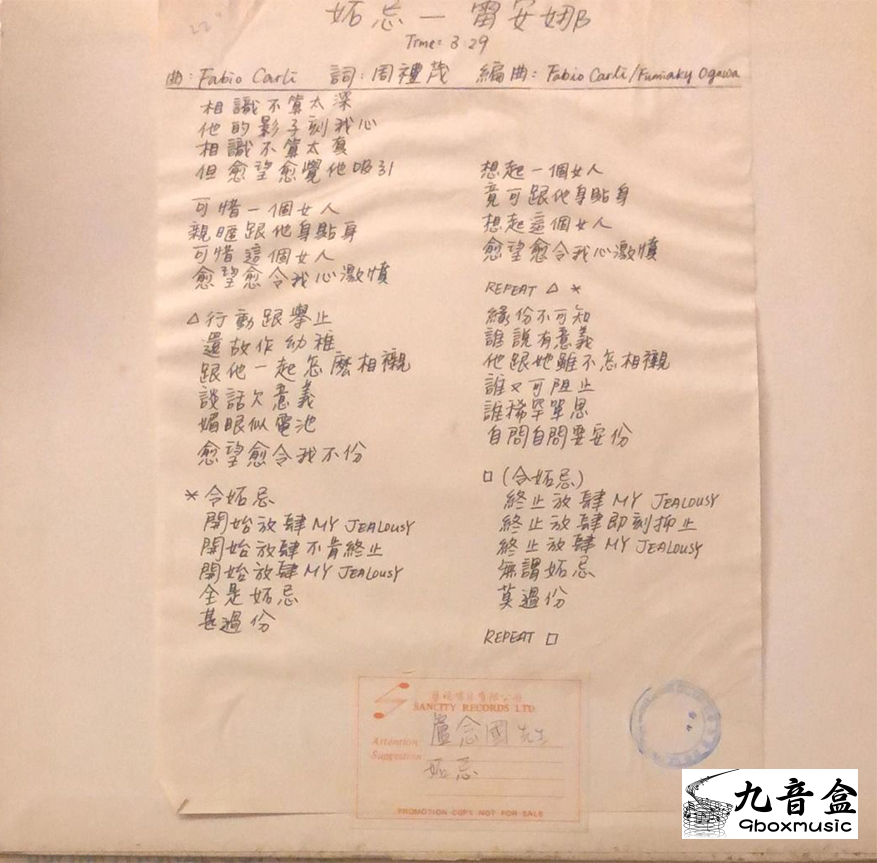 妬忌 — 雷安娜
Time: 3:29
曲: Fabio Carli 詞: 周禮茂 編曲: Fabio Carli/Fumiaky Ogawa
相識不算太深
他的影子刻我心
相識不算太真
但愈望愈覺他吸引
可惜一個女人
親暱跟他身貼身
可惜這個女人
愈望愈令我心激憤
△行動跟舉止
還故作幼稚
跟他一起怎麼相襯
談話欠意義
媚眼似電池
愈望愈令我不份
*令妬忌
開始放肆 MY JEALOUSY
開始放肆不肯終止
開始放肆 MY JEALOUSY
全是妬忌
甚過份
想起一個女人
竟可跟他身貼身
想起這個女人
愈望愈令我心激憤
REPEAT △ *
緣份不可知
誰說有意義
他跟她雖不怎相襯
誰又可阻止
誰稀罕單思
自問自問要安份
□(令妬忌)
終止放肆 MY JEALOUSY
終止放肆即刻抑止
終止放肆 MY JEALOUSY
無謂妬忌
莫過份
REPEAT □
SANCITY RECORDS LTD.
Attention 盧念國 先生
Suggestion 妬忌
PROMOTION COPY NOT FOR SALE
九音盒
9boxmusic